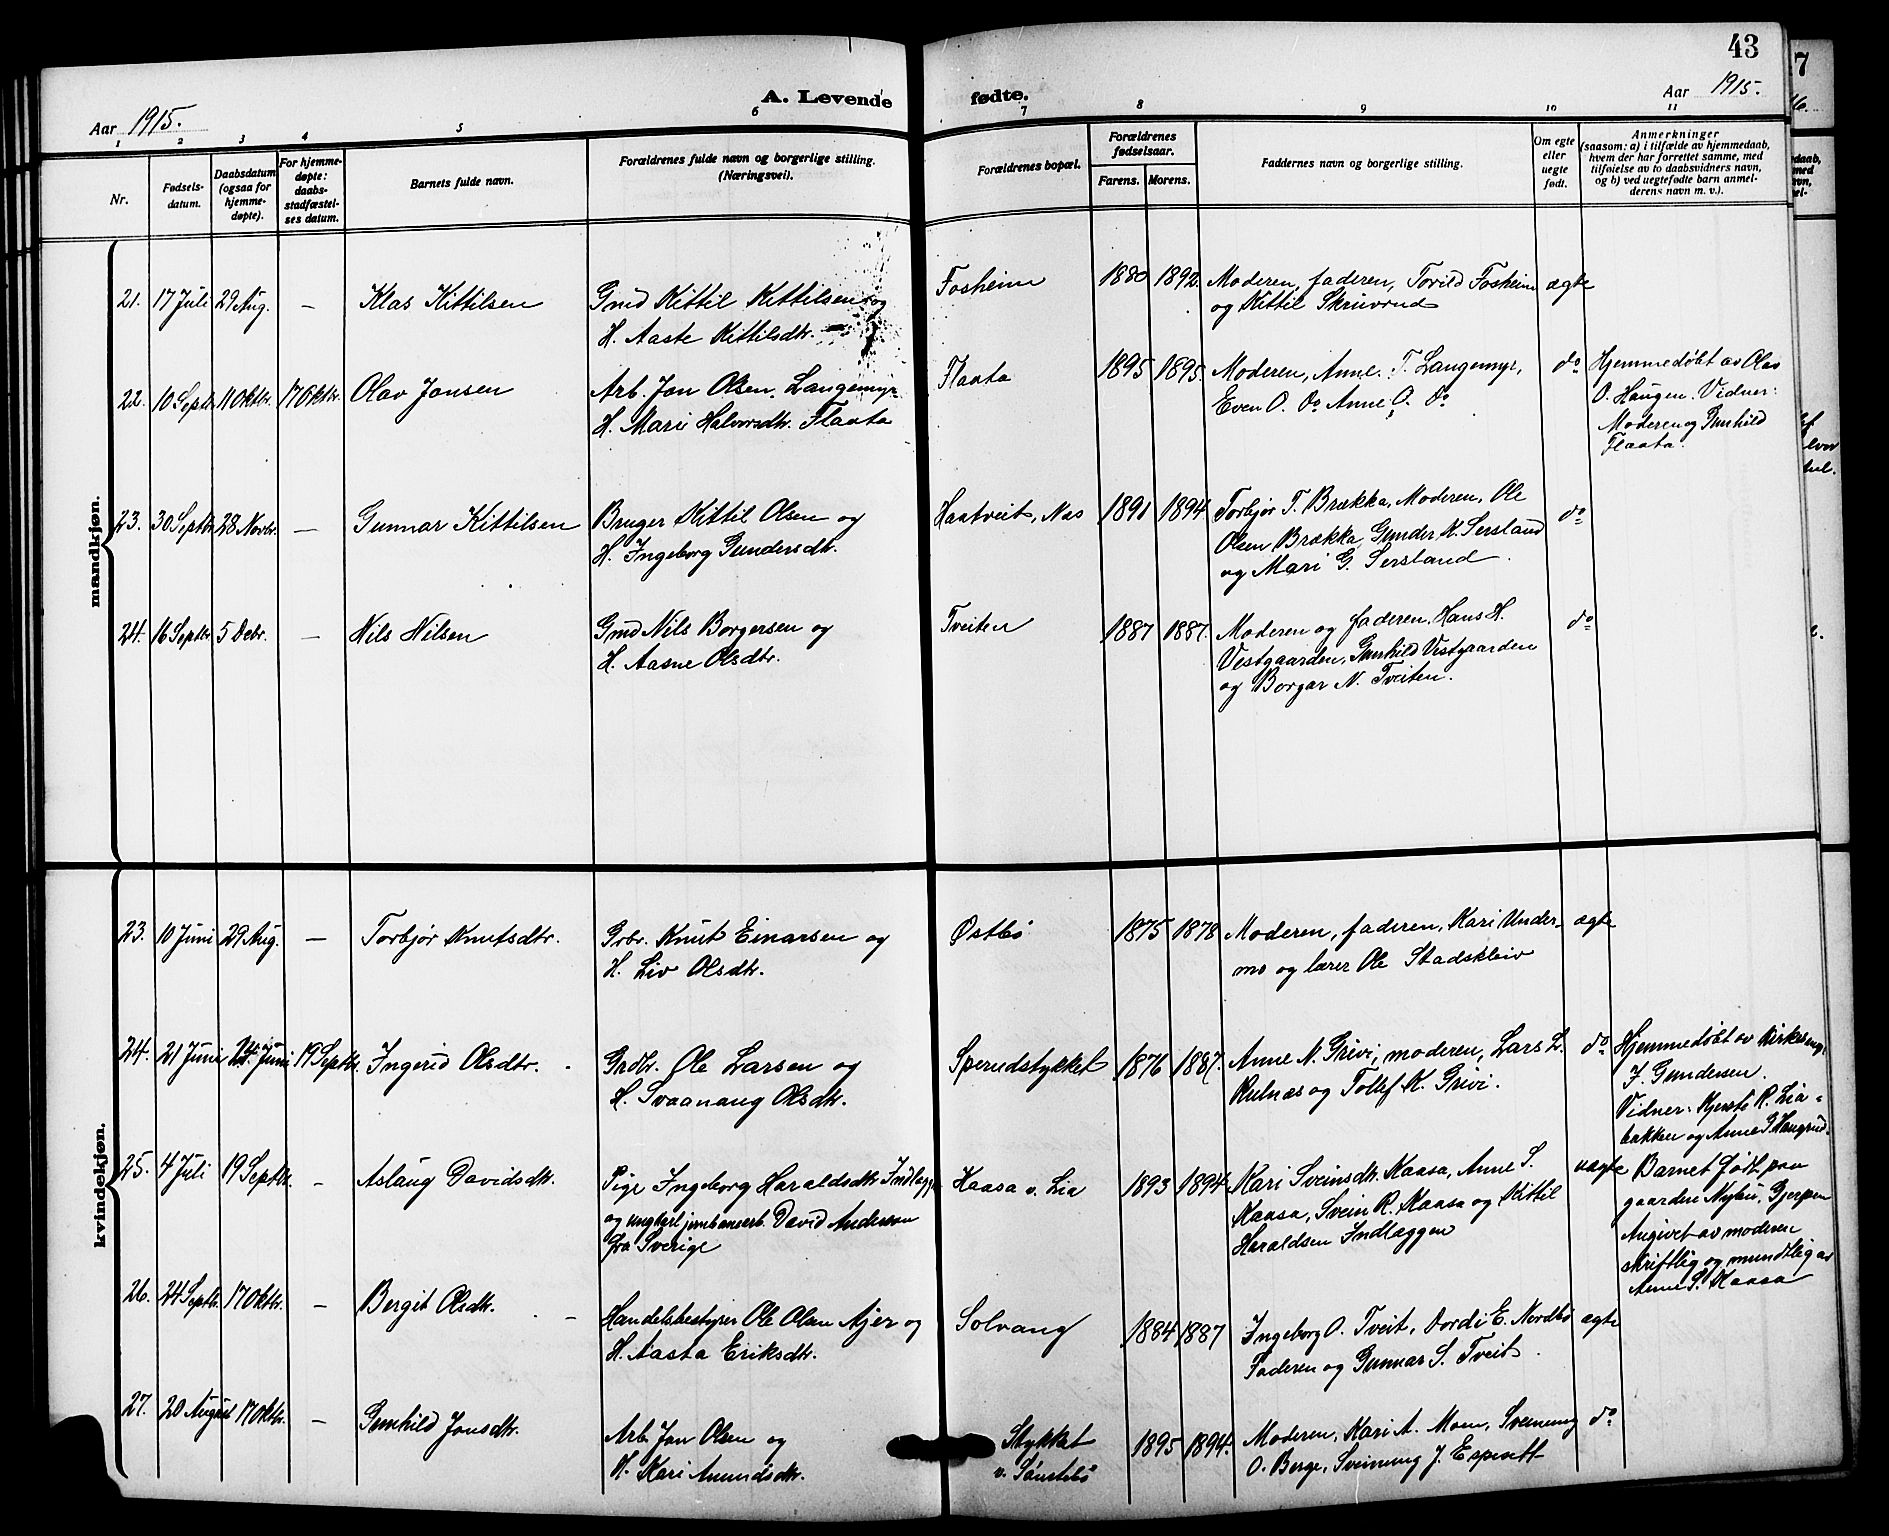 43
A. Levende fødte.
Aar 1915.
Aar 1915.
1 2 3 4 5 6 7 8 9 10 11
Nr.
Fødsels-
datum.
Daabsdatum
(ogsaa for
hjemme-
døpte).
For hjemme-
døpte:
daabs-
stadfæstel-
ses datum.
Barnets fulde navn.
Forældrenes fulde navn og borgerlige stilling.
(Næringsvei).
Forældrenes bopæl.
Forældrenes
fødselsaar.
Farens. Morens.
Faddernes navn og borgerlige stilling.
Om egte
eller
uegte
født.
Anmerkninger
(saasom: a) i tilfælde av hjemmedaab,
hvem der har forrettet samme, med
tilføielse av to daabsvidners navn,
og b) ved uegtefødte barn anmel-
derens navn m. v.).
mandkjøn.
21. 17 Juli 29 Aug. — Klas Kittilsen
Gmd Kittil Kittilsen og
H. Aaste Kittilsdtr.
Fosheim 1880 1892.
Moderen, faderen, Torild Fosheim
og Kittil Skruvrud
ægte
22. 10 Septr. 11 Oktbr. 17 Oktbr. Olav Jonsen
Arb. Jon Olsen Langemyr
H. Mari Halvorsdtr. Flaata
Flaata 1895 1895.
Moderen, Anne T. Langemyr,
Even O. do Anne O. do
do
Hjemmedøbt av Olav
O. Haugen. Vidner:
Moderen og Gunhild
Flaata.
23. 30 Septbr 28 Novbr. — Gunnar Kittilsen
Bruger Kittil Olsen og
H. Ingeborg Gundersdtr.
Haatveit, Nas 1891 1894
Torbjør T. Brækka, Moderen, Ole
Olsen Brækka, Gunder K. Sersland
og Mari G. Sersland.
do
24. 16 Septbr 5 Debr. — Nils Nilsen
Gmd Nils Borgersen og
H. Aasne Olsdtr.
Tveiten 1887 1887.
Moderen og faderen, Hans H.
Vestgaarden, Gunhild Vestgaarden
og Borgar N. Tveiten.
do
kvindekjøn.
23. 10 Juni 29 Aug. — Torbjør Knutsdtr.
Grbr. Knut Einarsen og
H. Liv Olsdtr.
Østbø 1875 1878
Moderen, faderen, Kari Under-
mo og lærer Ole Stadskleiv
ægte
24. 21 Juni Juni 19 Septbr. Ingerid Olsdtr.
Grdbr. Ole Larsen og
H. Svaanaug Olsdtr.
Sperudstykket 1876 1887.
Anne N. Grivi, moderen, Lars L.
Rulnæs og Tollef K. Grivi.
do
Hjemmedøbt av Kirkesang.
J. Gundersen.
Vidner: Kjersti R. Lia-
bakken og Anne G. Haugrud.
25. 4 Juli 19 Septbr. — Aslaug Davidsdtr.
Pige Ingeborg Haraldsdtr Indlægg.
og ungkarl jernbanearb. David Anderson
fra Sverige
Kaasa v. Lia 1893 1894.
Kari Sveinsdtr. Kaasa, Anne S.
Kaasa, Svein R. Kaasa og Kittil
Haraldsen Indlæggen
uægte
Barnet født paa
gaarden Nybu, Gjerpen
Angivet av moderen
skriftlig og mundtlig av
Anne S. Kaasa
26. 24 Septbr. 17 Oktbr. — Bergit Olsdtr.
Handelsbestyrer Ole Olsen Ajer og
H. Aasta Eriksdtr.
Solvang 1884 1887
Ingeborg O. Tveit, Dordi E. Nordbø
Faderen og Gunnar S. Tveit.
ægte
27. 20 August 17 Oktbr. — Gunhild Jonsdtr.
Arb. Jon Olsen og
H. Kari Amundsdtr.
Stykket
v. Sønstebø
1895 1894.
Moderen, Kari A. Moen, Sveinung
O. Berge, Sveinung J. Espesett
do